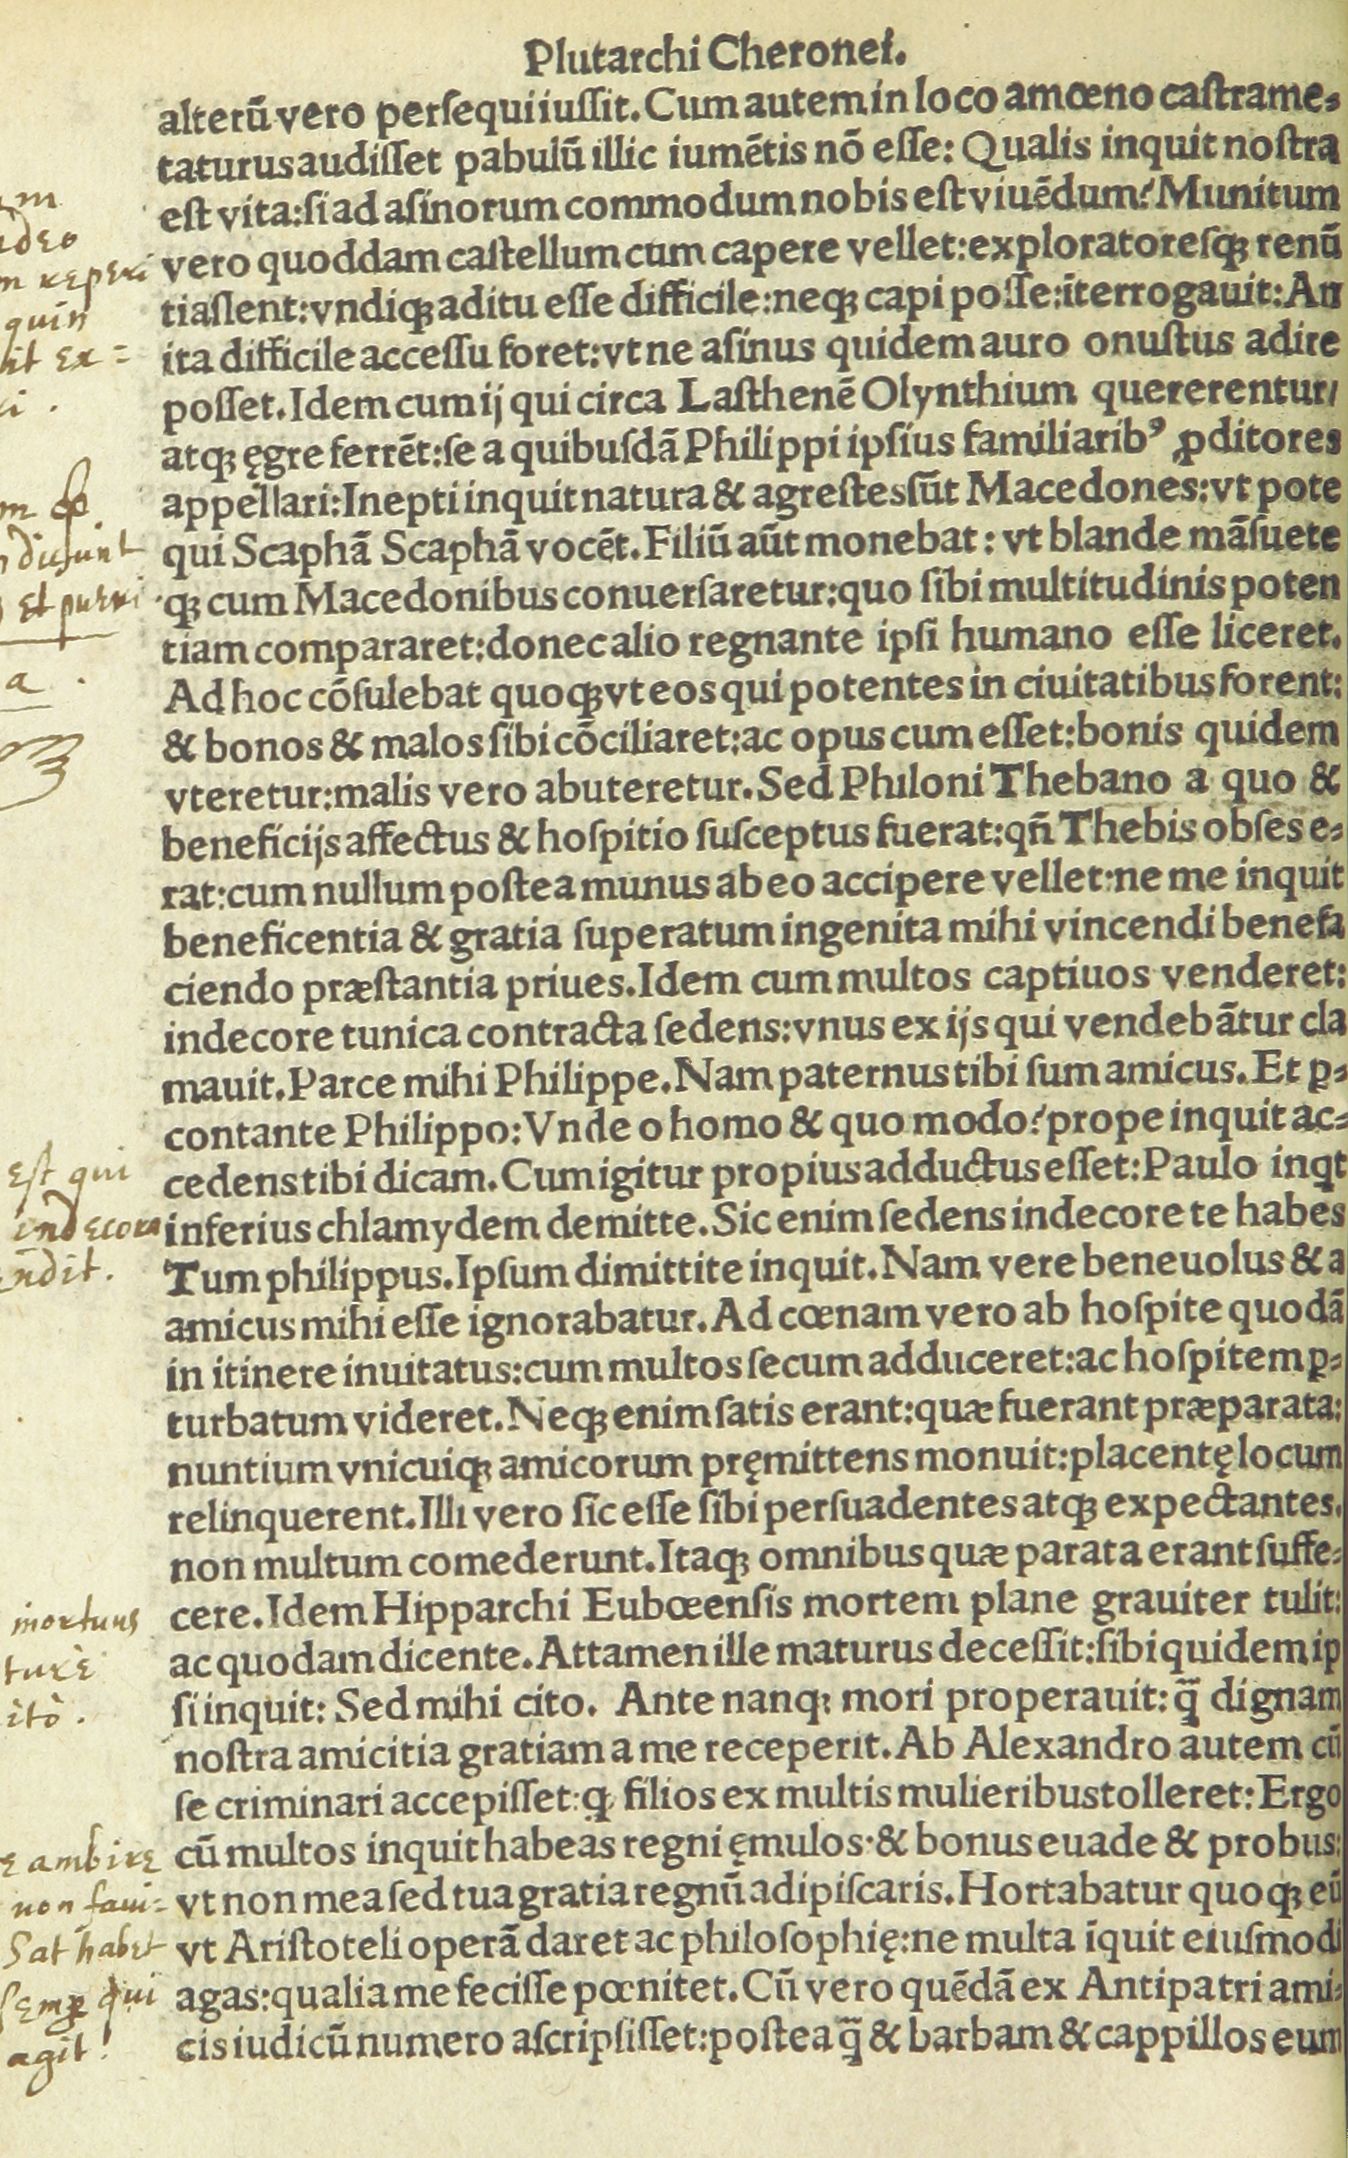 Plutarchi Cheronei.
alterū vero perſequi iuſſit. Cum autem in loco amœno caſtrame⸗
taturus audiſſet pabulū illic iumētis nō eſſe: Qualis inquit noſtra
eſt vita: ſi ad aſinorum commodum nobis eſt viuēdum? Munitum
vero quoddam caſtellum cum capere vellet: exploratoreſqꝫ renū
tiaſſent: vndiqꝫ aditu eſſe difficile: neqꝫ capi poſſe: īterrogauit: An
ita difficile acceſſu foret: vt ne aſinus quidem auro onuſtus adire
poſſet. Idem cum ij qui circa Laſthenē Olynthium quererentur/
atqꝫ ęgre ferrēt: ſe a quibuſdā Philippi ipſius familiaribꝰ ꝓditores
appellari: Inepti inquit natura & agreſtes ſūt Macedones: vt pote
qui Scaphā Scaphā vocēt. Filiū aūt monebat: vt blande māſuete
qꝫ cum Macedonibus conuerſaretur: quo ſibi multitudinis poten
tiam compararet: donec alio regnante ipſi humano eſſe liceret.
Ad hoc cōſulebat quoqꝫ vt eos qui potentes in ciuitatibus forent:
& bonos & malos ſibi cōciliaret: ac opus cum eſſet: bonis quidem
vteretur: malis vero abuteretur. Sed Philoni Thebano a quo &
beneficijs affectus & hoſpitio ſuſceptus fuerat: qn̄ Thebis obſes e⸗
rat: cum nullum poſtea munus ab eo accipere vellet: ne me inquit
beneficentia & gratia ſuperatum ingenita mihi vincendi benefa
ciendo præſtantia priues. Idem cum multos captiuos venderet:
indecore tunica contracta ſedens: vnus ex ijs qui vendebātur cla
mauit. Parce mihi Philippe. Nam paternus tibi ſum amicus. Et ꝑ⸗
contante Philippo: Vnde o homo & quo modo? prope inquit ac⸗
cedens tibi dicam. Cum igitur propius adductus eſſet: Paulo inqt
inferius chlamydem demitte. Sic enim ſedens indecore te habes
Tum philippus. Ipſum dimittite inquit. Nam vere beneuolus & a
amicus mihi eſſe ignorabatur. Ad cœnam vero ab hoſpite quodā
in itinere inuitatus: cum multos ſecum adduceret: ac hoſpitem ꝑ⸗
turbatum videret. Neqꝫ enim ſatis erant: quæ fuerant præparata:
nuntium vnicuiqꝫ amicorum pręmittens monuit: placentę locum
relinquerent. Illi vero ſic eſſe ſibi perſuadentes atqꝫ expectantes.
non multum comederunt. Itaqꝫ omnibus quæ parata erant ſuffe⸗
cere. Idem Hipparchi Eubœenſis mortem plane grauiter tulit:
ac quodam dicente. Attamen ille maturus deceſſit: ſibi quidem ip
ſi inquit: Sed mihi cito. Ante nanqꝫ mori properauit: q̄ dignam
noſtra amicitia gratiam a me receperit. Ab Alexandro autem cū
ſe criminari accepiſſet: ꝙ filios ex multis mulieribus tolleret: Ergo
cū multos inquit habeas regni ęmulos: & bonus euade & probus:
vt non mea ſed tua gratia regnū adipiſcaris. Hortabatur quoqꝫ eū
vt Ariſtoteli operā daret ac philoſophię: ne multa īquit eiuſmodi
agas: qualia me feciſſe pœnitet. Cū vero quēdā ex Antipatri ami⸗
cis iudicū numero aſcripſiſſet: poſtea q̄ & barbam & cappillos eum
quin
et pueri
a
est qui
indecora
mortuus
ambire
non
Sat habet
semꝑ qui
agit!